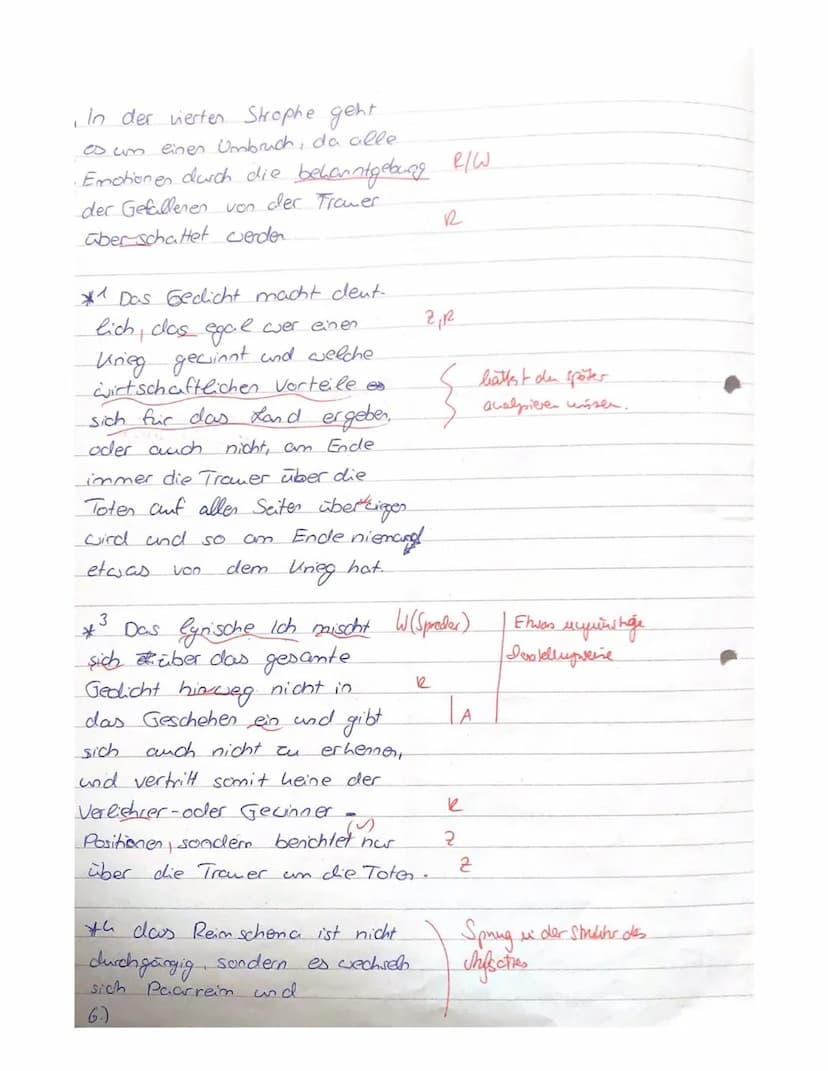 In der vierten Strophe geht
es um einen Umbruch, da alle
Emotionen durch die bekanntgebung R/W
der Gefallenen von der Trauer
überschattet werden R
*1 Das Gedicht macht deut-
lich, das egal wer einen Z, R
Krieg gewinnt und welche
wirtschaftlichen Vorteile hättest du später
sich für das Land ergeben, analysieren müssen.
oder auch nicht, am Ende
immer die Trauer über die
Toten auf allen Seiten überwiegen
wird und so am Ende niemand
etwas von dem Krieg hat.
*3 Das lyrische Ich mischt W (Sprecher) Etwas ungünstige
sich über das gesamte Darstellungsweise
Gedicht hinweg nicht in R
das Geschehen ein und gibt A
sich auch nicht zu erkennen,
und vertritt somit keine der
Verliehrer- oder Gewinner- R
Positionen, sondern berichtet nur (✓) Z
über die Trauer um die Toten. Z
*4 das Reimschema ist nicht Sprung in der Struktur des
durchgängig, sondern es wechseln Aufsatzes
sich Paarreim und
6.)